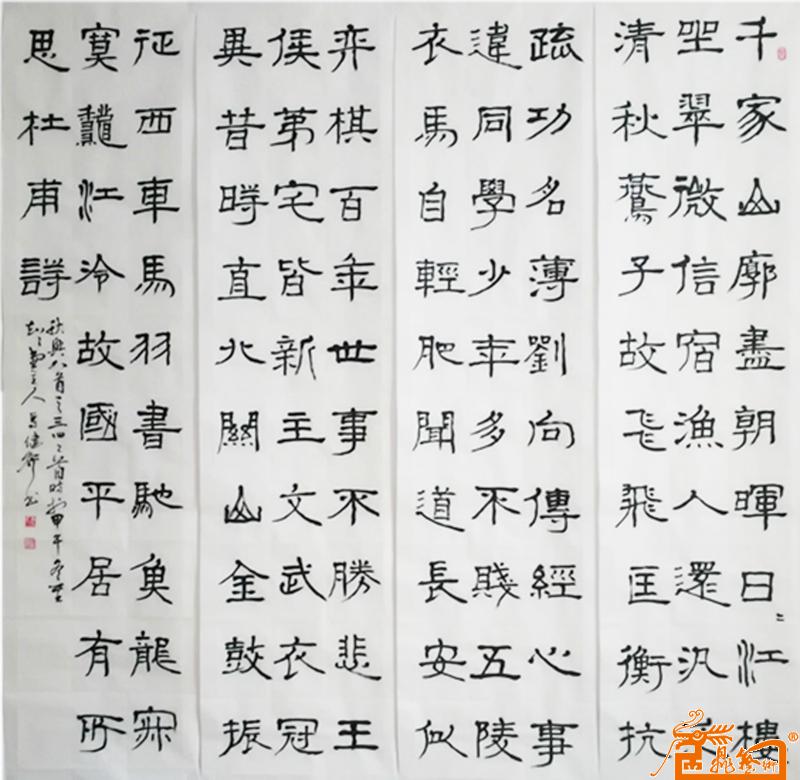 千家山廓盡朝暉日〻江樓
坐翠微信宿漁人還汎
清秋燕子故飞飛匡衡抗
疏功名薄劉向傳經心事
違同學少年多不賤五陵
衣馬自輕肥聞道長安似
弈棋百年世事不勝悲王
侯第宅皆新主文武衣冠
異昔時直北關山金鼓振
征西車馬羽書馳魚龍寂
寞龝江冷故國平居有所
思杜甫詩
秋興八首之三四二首時於甲午冬
主人